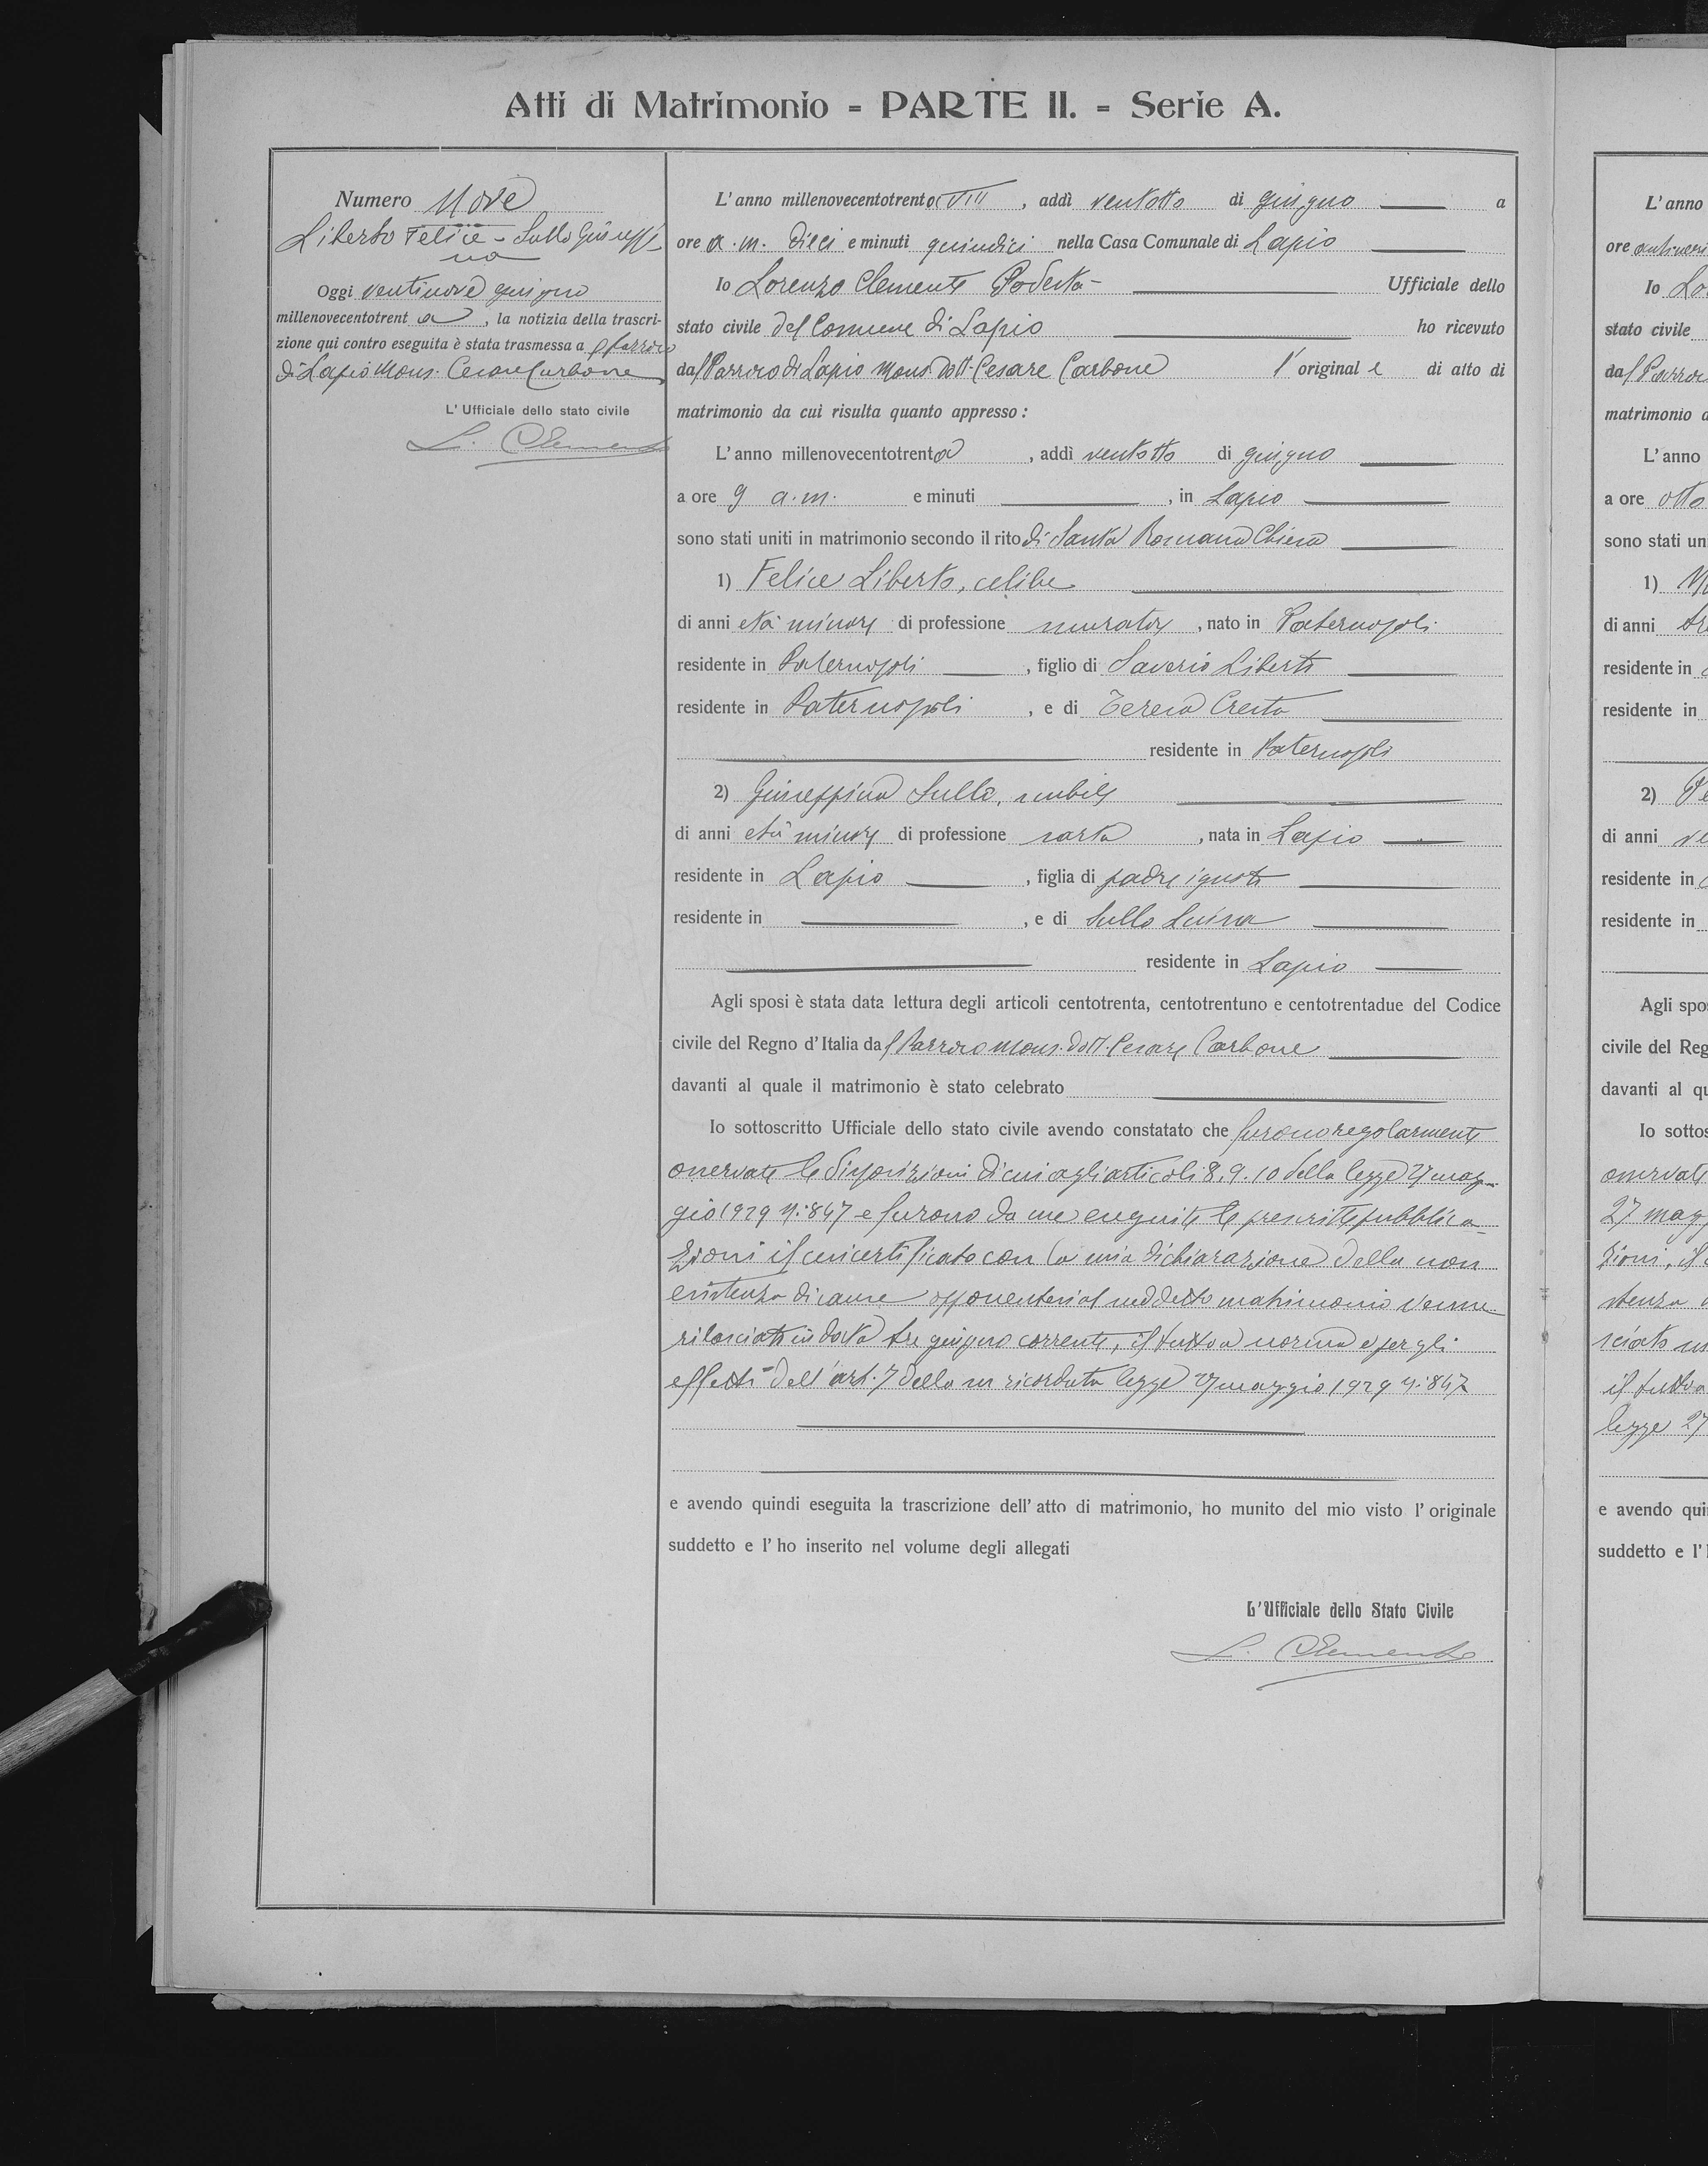 Atti di Matrimonio = PARTE II. = Serie A.
Numero Nove
Liberto Felice - Sullo Giuseppi
na
Oggi ventinove giugno
millenovecentotrent a, la notizia della trascri-
zione qui contro eseguita è stata trasmessa a l parroco
di Lapio Mons. Cesare Carbone
L'Ufficiale dello stato civile
L. Clemente
L'anno millenovecentotrenta VIII, addì ventotto di giugno a
ore a.m. dieci e minuti quindici nella Casa Comunale di Lapio
Io Lorenzo Clemente Podestà - Ufficiale dello
stato civile del Comune di Lapio ho ricevuto
dal Parroco di Lapio Mons. Dott. Cesare Carbone l'original e di atto di
matrimonio da cui risulta quanto appresso:
L'anno millenovecentotrenta, addì ventotto di giugno
a ore 9 a.m. e minuti, in Lapio
sono stati uniti in matrimonio secondo il rito di Santa Romana Chiesa
1) Felice Liberto, celibe
di anni età minore di professione muratore, nato in Paternopoli
residente in Paternopoli, figlio di Saverio Liberto
residente in Paternopoli, e di Teresa Cresta
residente in Paternopoli
2) Giuseppina Sullo, nubile
di anni età minore di professione sarta, nata in Lapio
residente in Lapio, figlia di padre ignoto
residente in, e di Sullo Luisa
residente in Lapio
Agli sposi è stata data lettura degli articoli centotrenta, centotrentuno e centotrentadue del Codice
civile del Regno d'Italia dal Parroco Mons. Dott. Cesare Carbone
davanti al quale il matrimonio è stato celebrato
Io sottoscritto Ufficiale dello stato civile avendo constatato che furono regolarmente
osservate le disposizioni di cui agli articoli 8. 9. 10 della legge 27 mag-
gio 1929 N: 847 e furono da me eseguite le prescritte pubblica-
zioni il cui certificato con la mia dichiarazione della non
esistenza di cause opponentesi al suddetto matrimonio venne
rilasciato in data tre giugno corrente, il tutto a norma e per gli
effetti dell'art. 7 della su ricordata legge 27 maggio 1929 N: 847
e avendo quindi eseguita la trascrizione dell'atto di matrimonio, ho munito del mio visto l'originale
suddetto e l'ho inserito nel volume degli allegati
L'Ufficiale dello Stato Civile
L. Clemente
L'anno
ore
Io
stato civile
matrimonio
L'anno
a ore otto
sono stati
1)
di anni
residente in
residente in
2)
di anni
residente in
residente in
Agli
civile del
davanti al
Io
27
il tutto
legge 27
e avendo
suddetto e